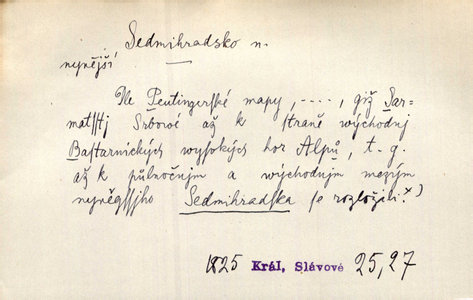 Sedmihradsko n.
nynější
Dle Peutingerské mapy, ----, giž Sar-
matsstj Srbové až k straně wýchodnj
Bastarnických wysokých hor Alpů, t. g.
až k půlnočnjm a wýchodnjm mezým
nyněgssjho Sedmihradska se rozložili x)
1825 Král, Slávové 25,27